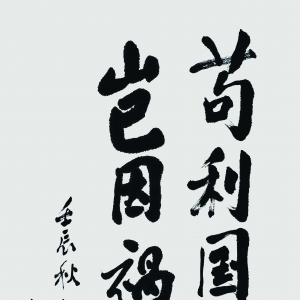 苟利国
岂因祸
壬辰秋